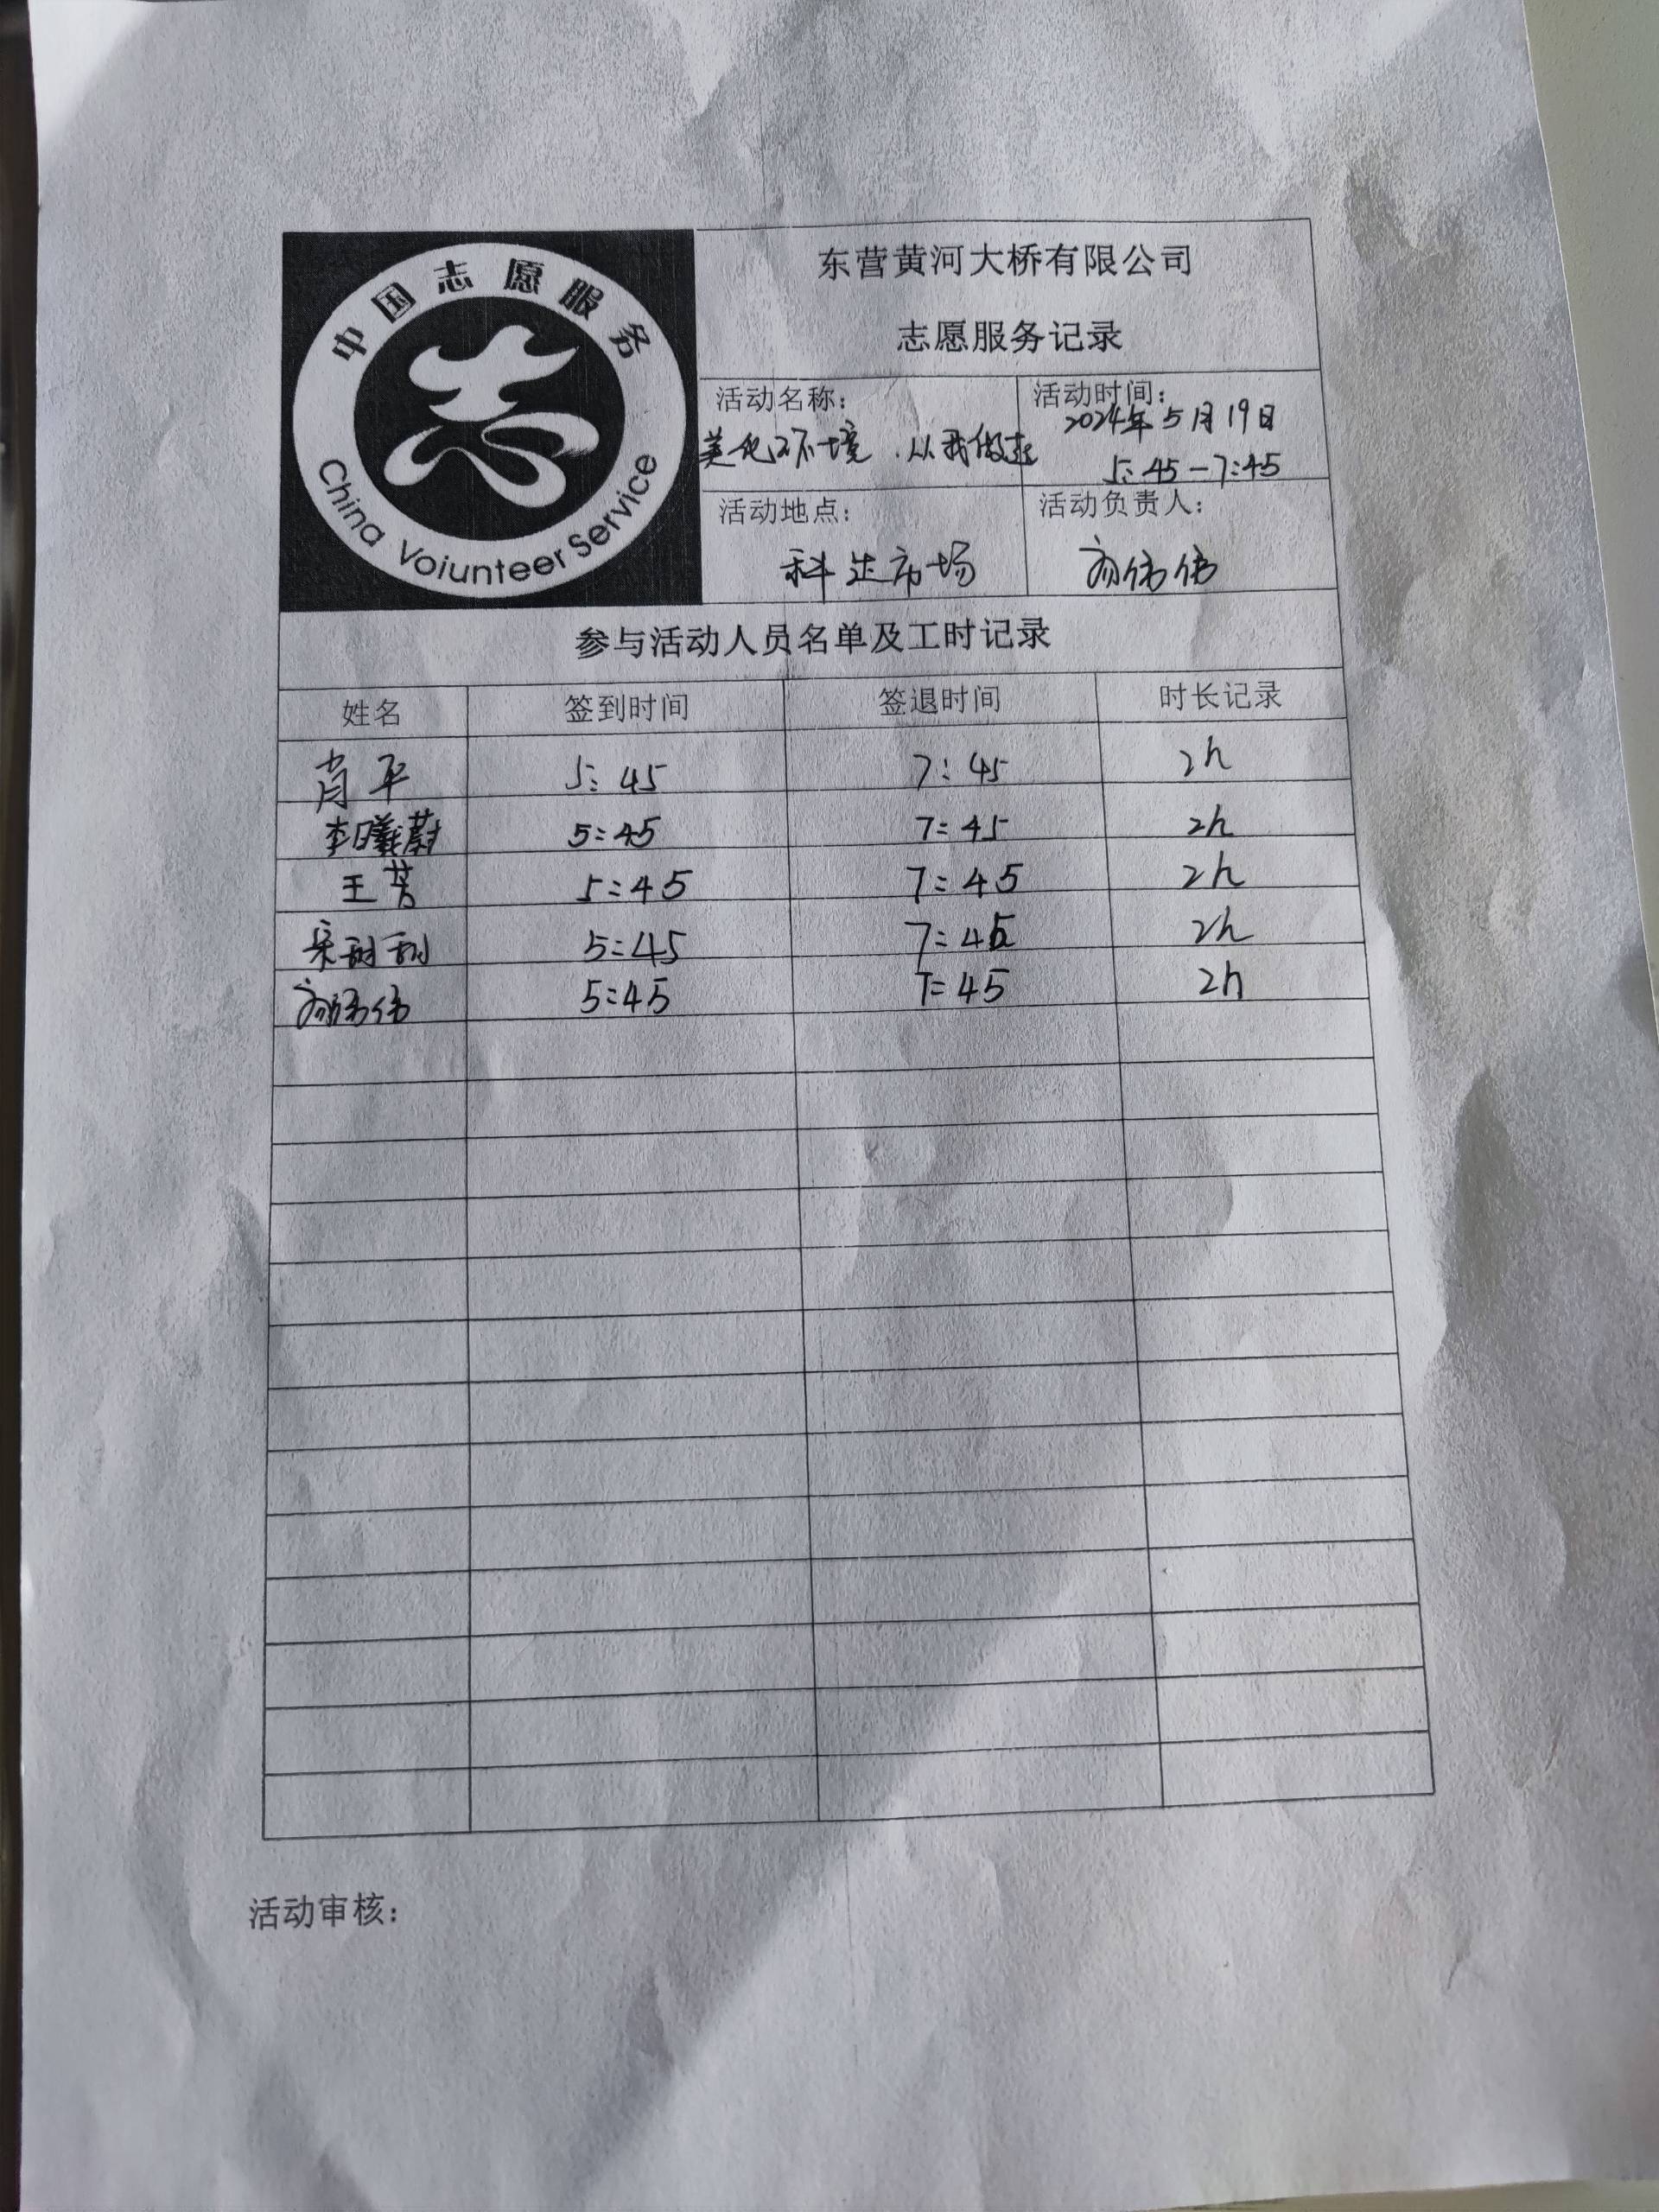 中国志愿服务
China Voiunteer Service
东营黄河大桥有限公司
志愿服务记录
活动名称：
美化环境，从我做起
活动时间：
2024年5月19日
5:45-7:45
活动地点：
科达市场
活动负责人：
伟伟
参与活动人员名单及工时记录
姓名 签到时间 签退时间 时长记录
肖平 5:45 7:45 2h
李曦蔚 5:45 7:45 2h
王芳 5:45 7:45 2h
甜甜 5:45 7:45 2h
伟伟 5:45 7:45 2h
活动审核：